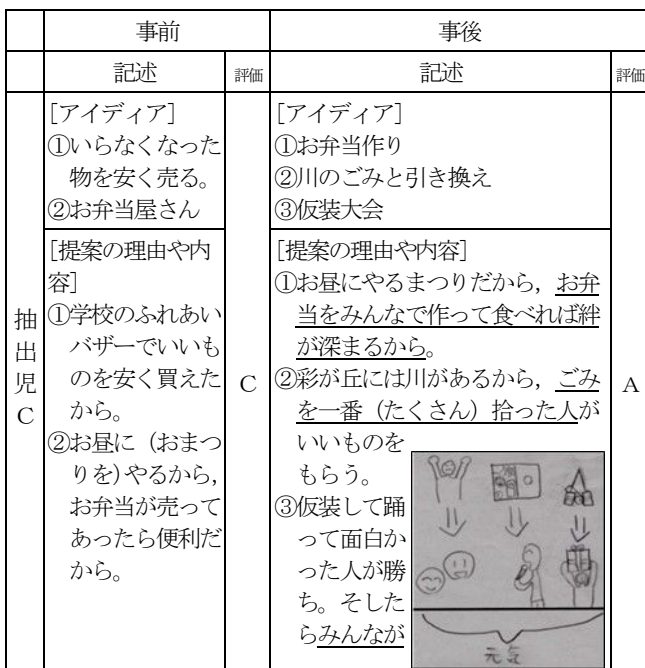 事前 事後
記述 評価 記述 評価
抽出児C
[アイディア]
①いらなくなった
物を安く売る。
②お弁当屋さん
[提案の理由や内
容]
①学校のふれあい
バザーでいいも
のを安く買えた
から。
②お昼に（おまつ
りを）やるから，
お弁当が売って
あったら便利だ
から。
C
[アイディア]
①お弁当作り
②川のごみと引き換え
③仮装大会
[提案の理由や内容]
①お昼にやるまつりだから，お弁
当をみんなで作って食べれば絆
が深まるから。
②彩が丘には川があるから，ごみ
を一番（たくさん）拾った人が
いいものを
もらう。
③仮装して踊
って面白か
った人が勝
ち。そした
らみんなが
元気
A